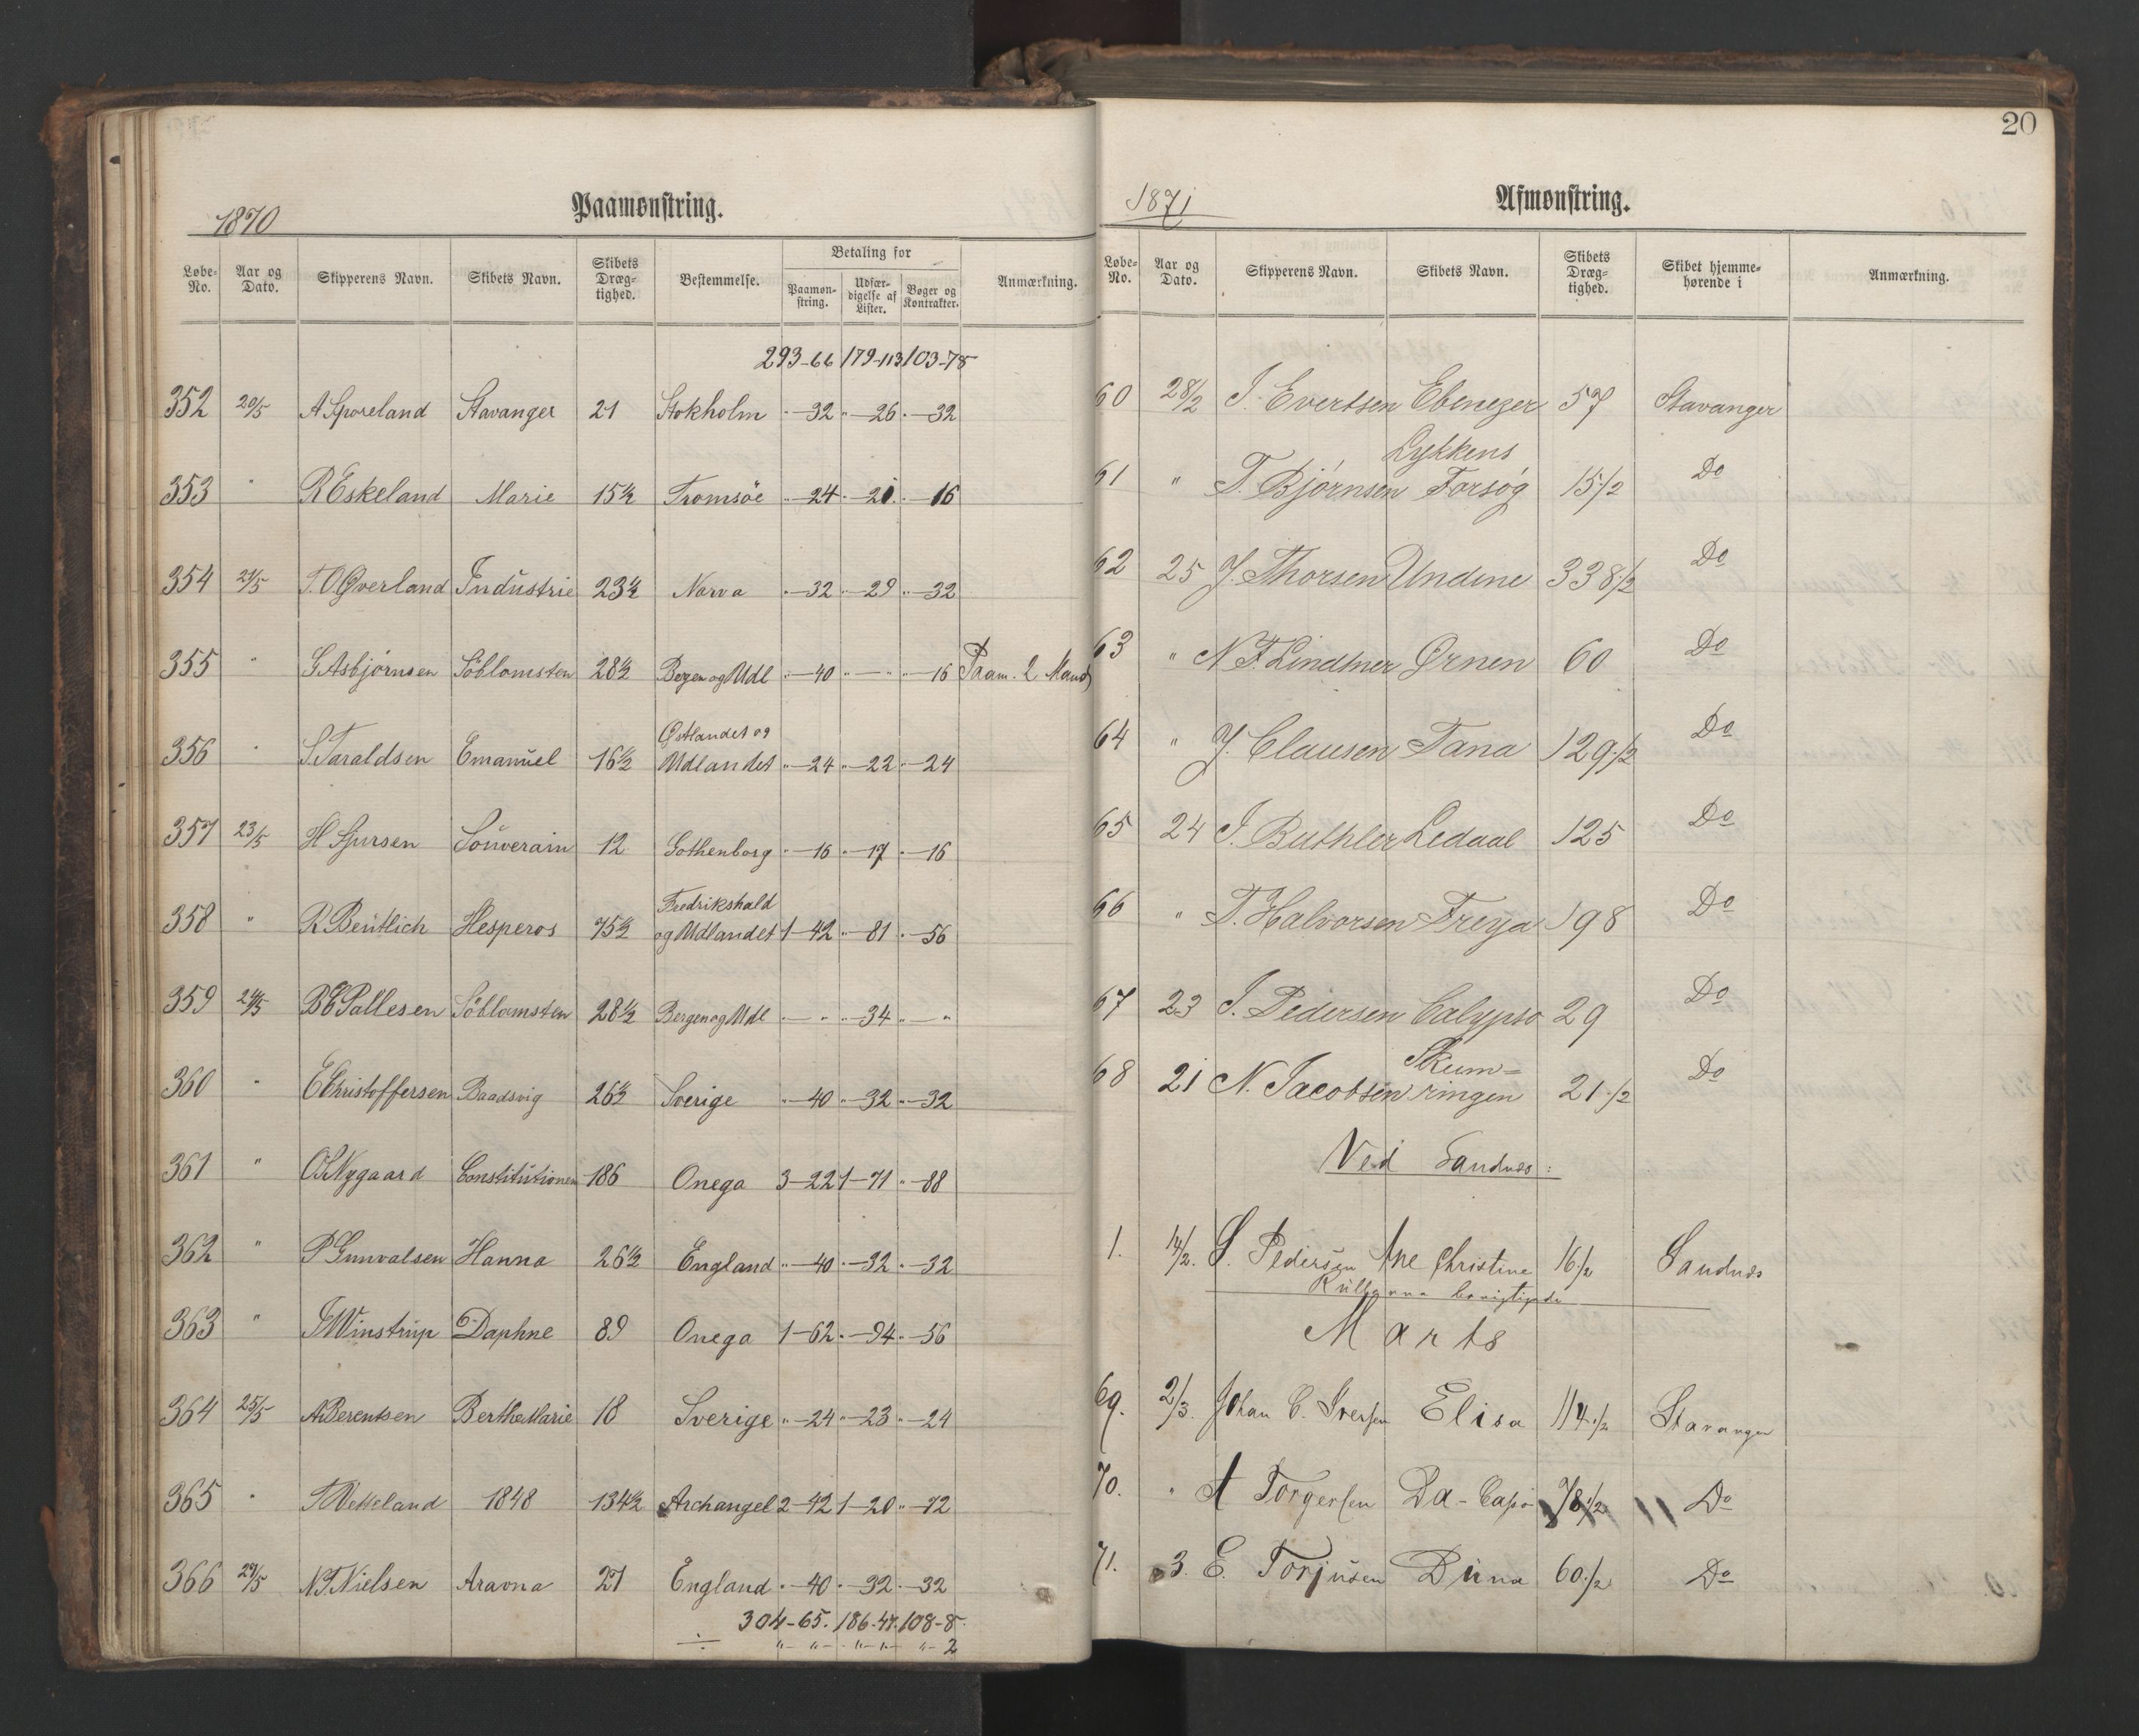 Paamønstring.
1870
Løbe-No. Aar og Dato. Skipperens Navn. Skibets Navn. Skibets Dræg-tighed. Bestemmelse. Betaling for Paamøn-string. Udfær-digelse af Lister. Bøger og Kontrakter. Anmærkning.
293-66 179-113 103-78
352 20/5 A Sporeland Stavanger 21 Stokholm "-32 "-26 "-32
353 " R Eskeland Marie 15½ Tromsöe "-24 "-21 "-16
354 21/5 T. O Gverland Industrie 23½ Narva "-32 "-29 "-32
355 " G Asbjørnsen Söblomsten 28½ Bergen og Udl "-40 "-" "-16 Paam. 2 Mand
356 " S Taraldsen Emanuel 16½ Østlandet og
Udlandet "-24 "-22 "-24
357 23/5 H Sjursen Souverain 12 Gothenborg "-16 "-17 "-16
358 " R Bentlich Hesperos 75½ Fredrikshald
og Udlandet 1-42 "-81 "-56
359 24/5 B E Pallesen Söblomsten 28½ Bergen og Udl "-" "-34 "-"
360 " E Christoffersen Baadsvig 26½ Sverige "-40 "-32 "-32
361 " Nygaard Constitutionen 186 Onega 3-22 1-71 "-88
362 " P Gunvalsen Hanna 26½ England "-40 "-32 "-32
363 " J Winstrup Daphne 89 Onega 1-62 "-94 "-56
364 25/5 A Berentsen Berthe Marie 18 Sverige "-24 "-23 "-24
365 " 1848 134½ Archangel 2-42 1-20 "-72
366 27/5 N T Nielsen Aravna 27 England "-40 "-32 "-32
304-65. 186-47. 108-8
÷ "-"- "-"- "-2
20
Afmønstring.
1871
Løbe-No. Aar og Dato. Skipperens Navn. Skibets Navn. Skibets Dræg-tighed. Skibet hjemme-hørende i Anmærkning.
60 28/2 J. Evertsen Ebenezer 57 Stavanger
61 " T. Bjørnsen Lykkens
Forsøg 15 1/2 Do
62 25 J. Thorsen Undine 338 1/2 Do
63 " N F Lindtner Ørnen 60 Do
64 " J. Clausen Tana 129 1/2 Do
65 24 J. Buthler Ledaal 125 Do
66 " T. Halvorsen Freya 198 Do
67 23 J. Pedersen Calypso 29 Do
68 21 N. Jacobsen Skum=
ringen 21 1/2 Do
Ved Sandnæs:
1. 14/2. S. Pedersen Ane Christine 16 1/2 Sandnæs
Marts
69. 2/3. Johan C. Iversen Elisa 114 1/2 Stavanger
70. " A Torgersen Da-Capo 78 1/2 " Do
71. 3. E. Torjusen Duna 60 1/2 Do